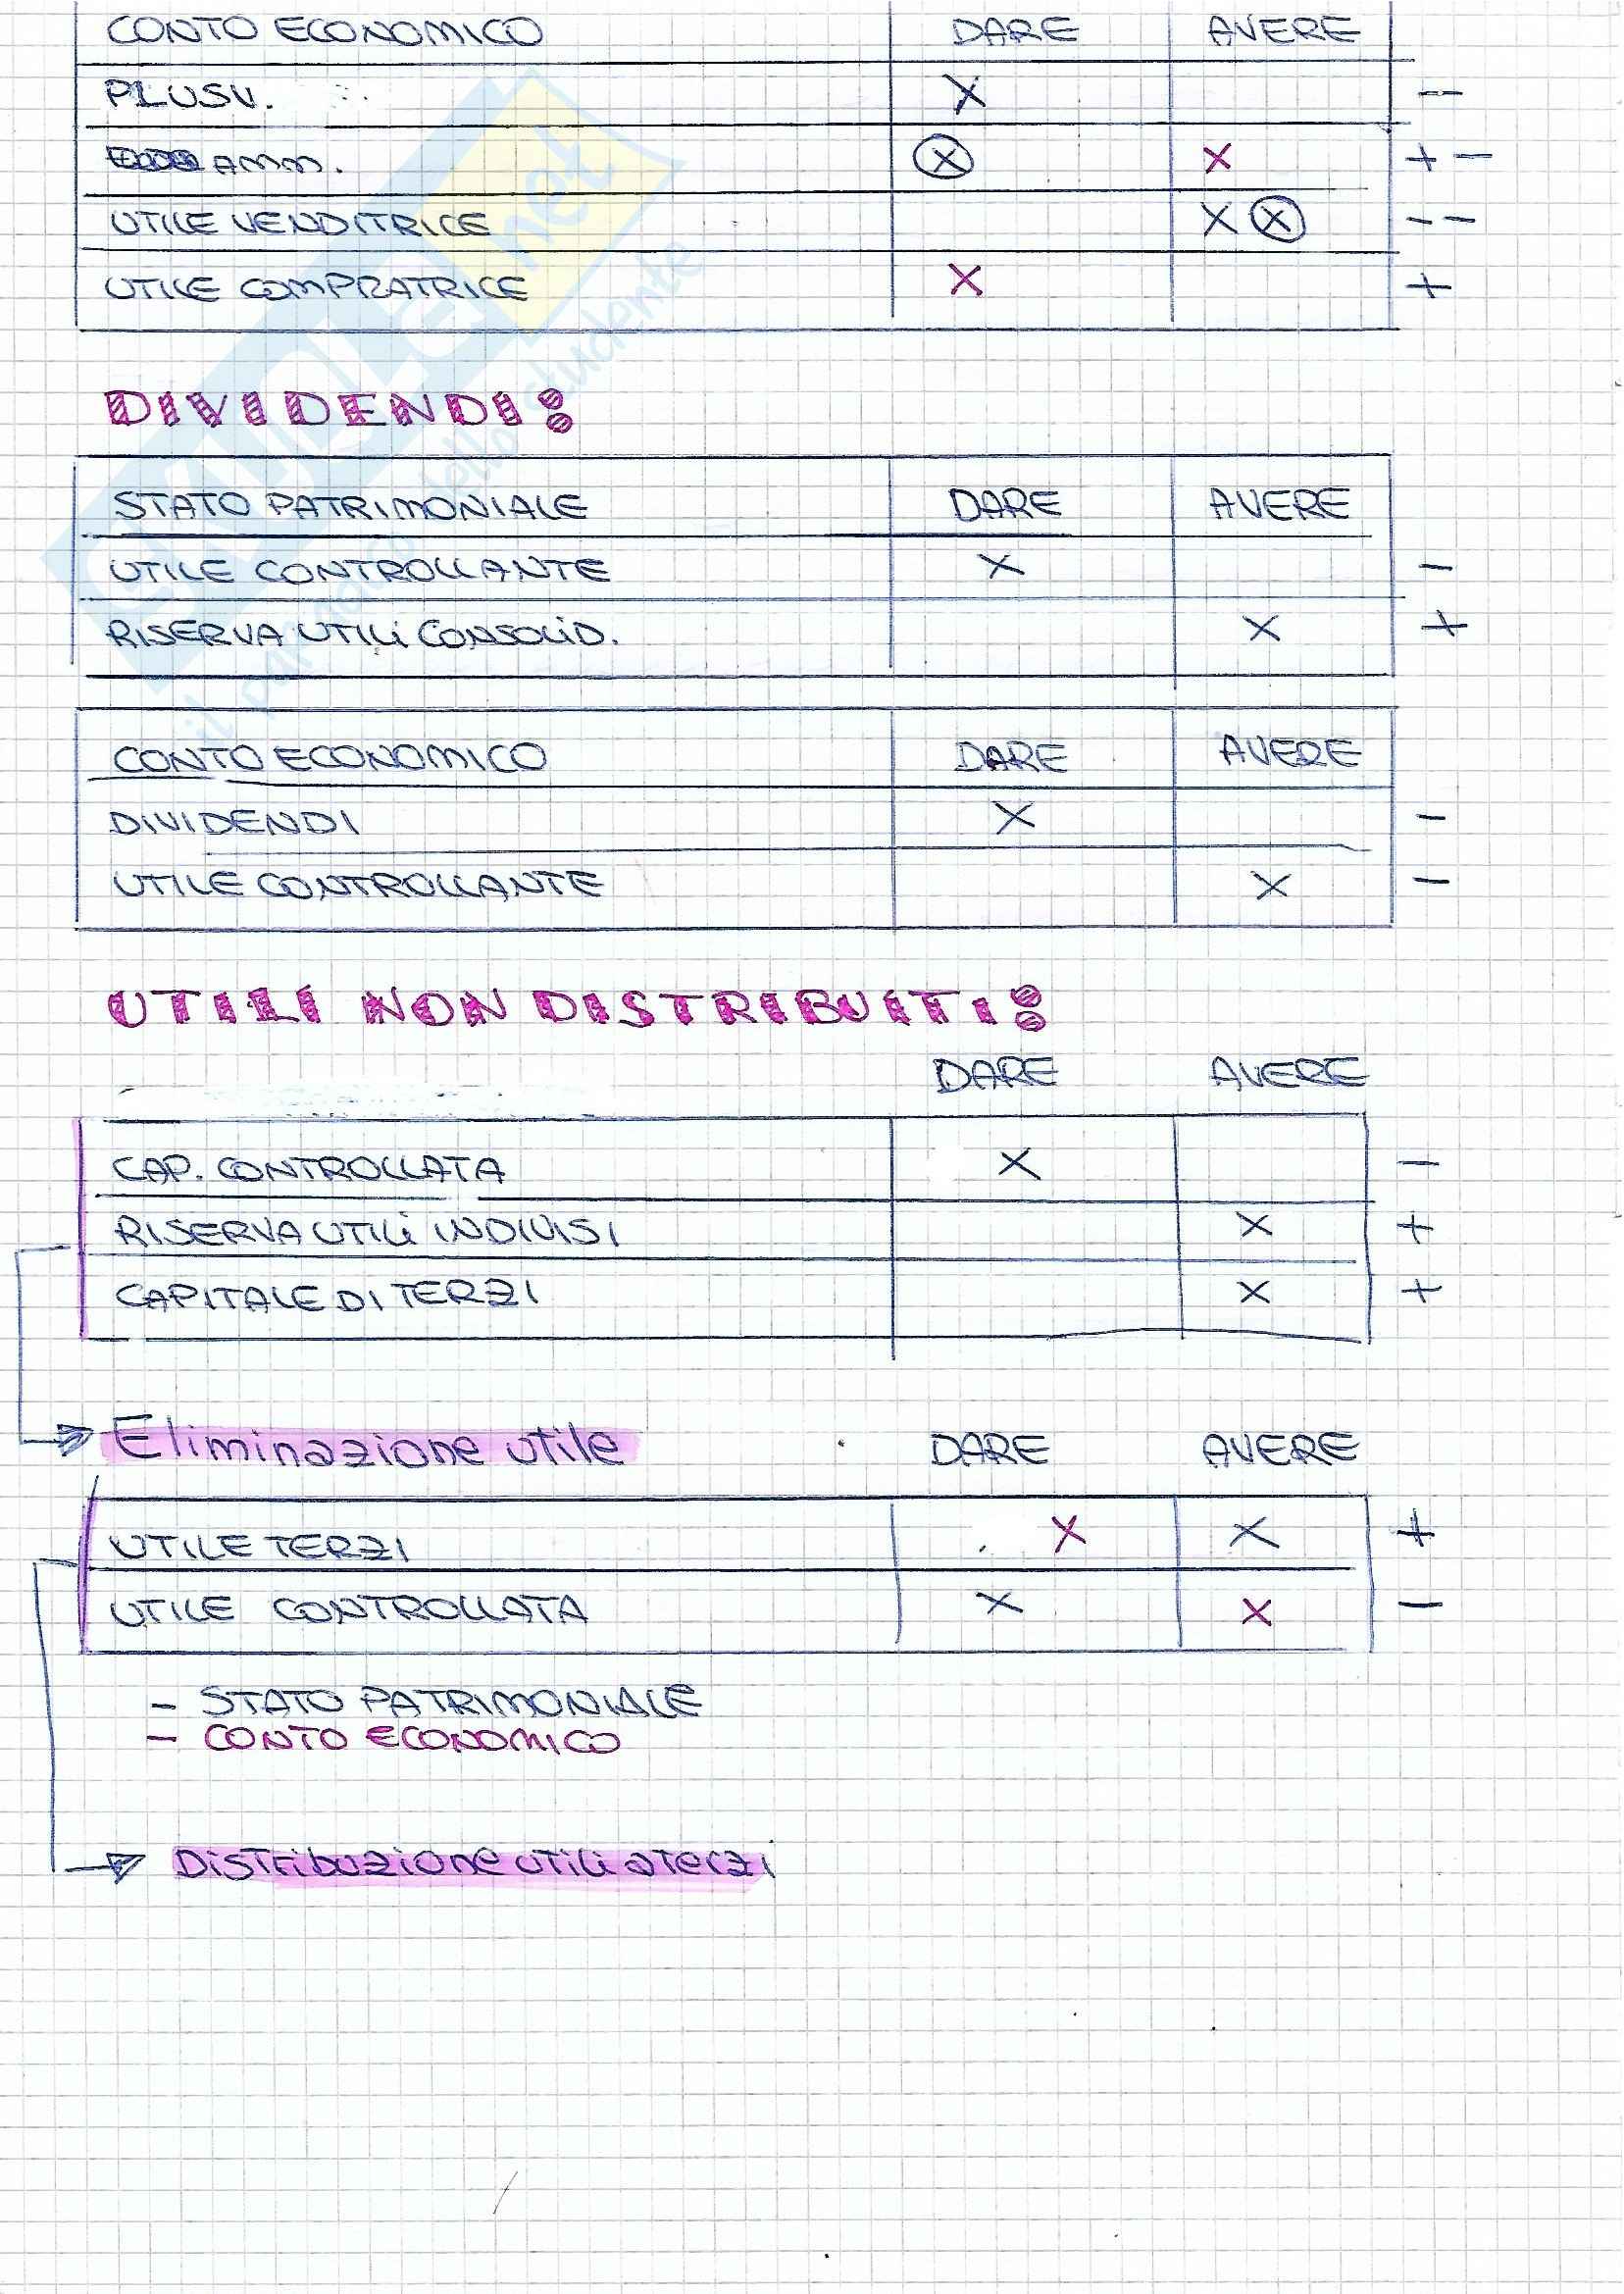 CONTO ECONOMICO DARE AVERE
PLUSV. X --
AMM. X X + -
UTILE VENDITRICE X X --
UTILE COMPRATRICE X +
DIVIDENDI:
STATO PATRIMONIALE DARE AVERE
UTILE CONTROLLANTE X -
RISERVA UTILI CONSOLID. X +
CONTO ECONOMICO DARE AVERE
DIVIDENDI X -
UTILE CONTROLLANTE X -
UTILI NON DISTRIBUITI:
DARE AVERE
CAP. CONTROLLATA X -
RISERVA UTILI INDIVISI X +
CAPITALE DI TERZI X +
Eliminazione utile DARE AVERE
UTILE TERZI X X +
UTILE CONTROLLATA X X -
- STATO PATRIMONIALE
- CONTO ECONOMICO
Distribuzione utili a terzi